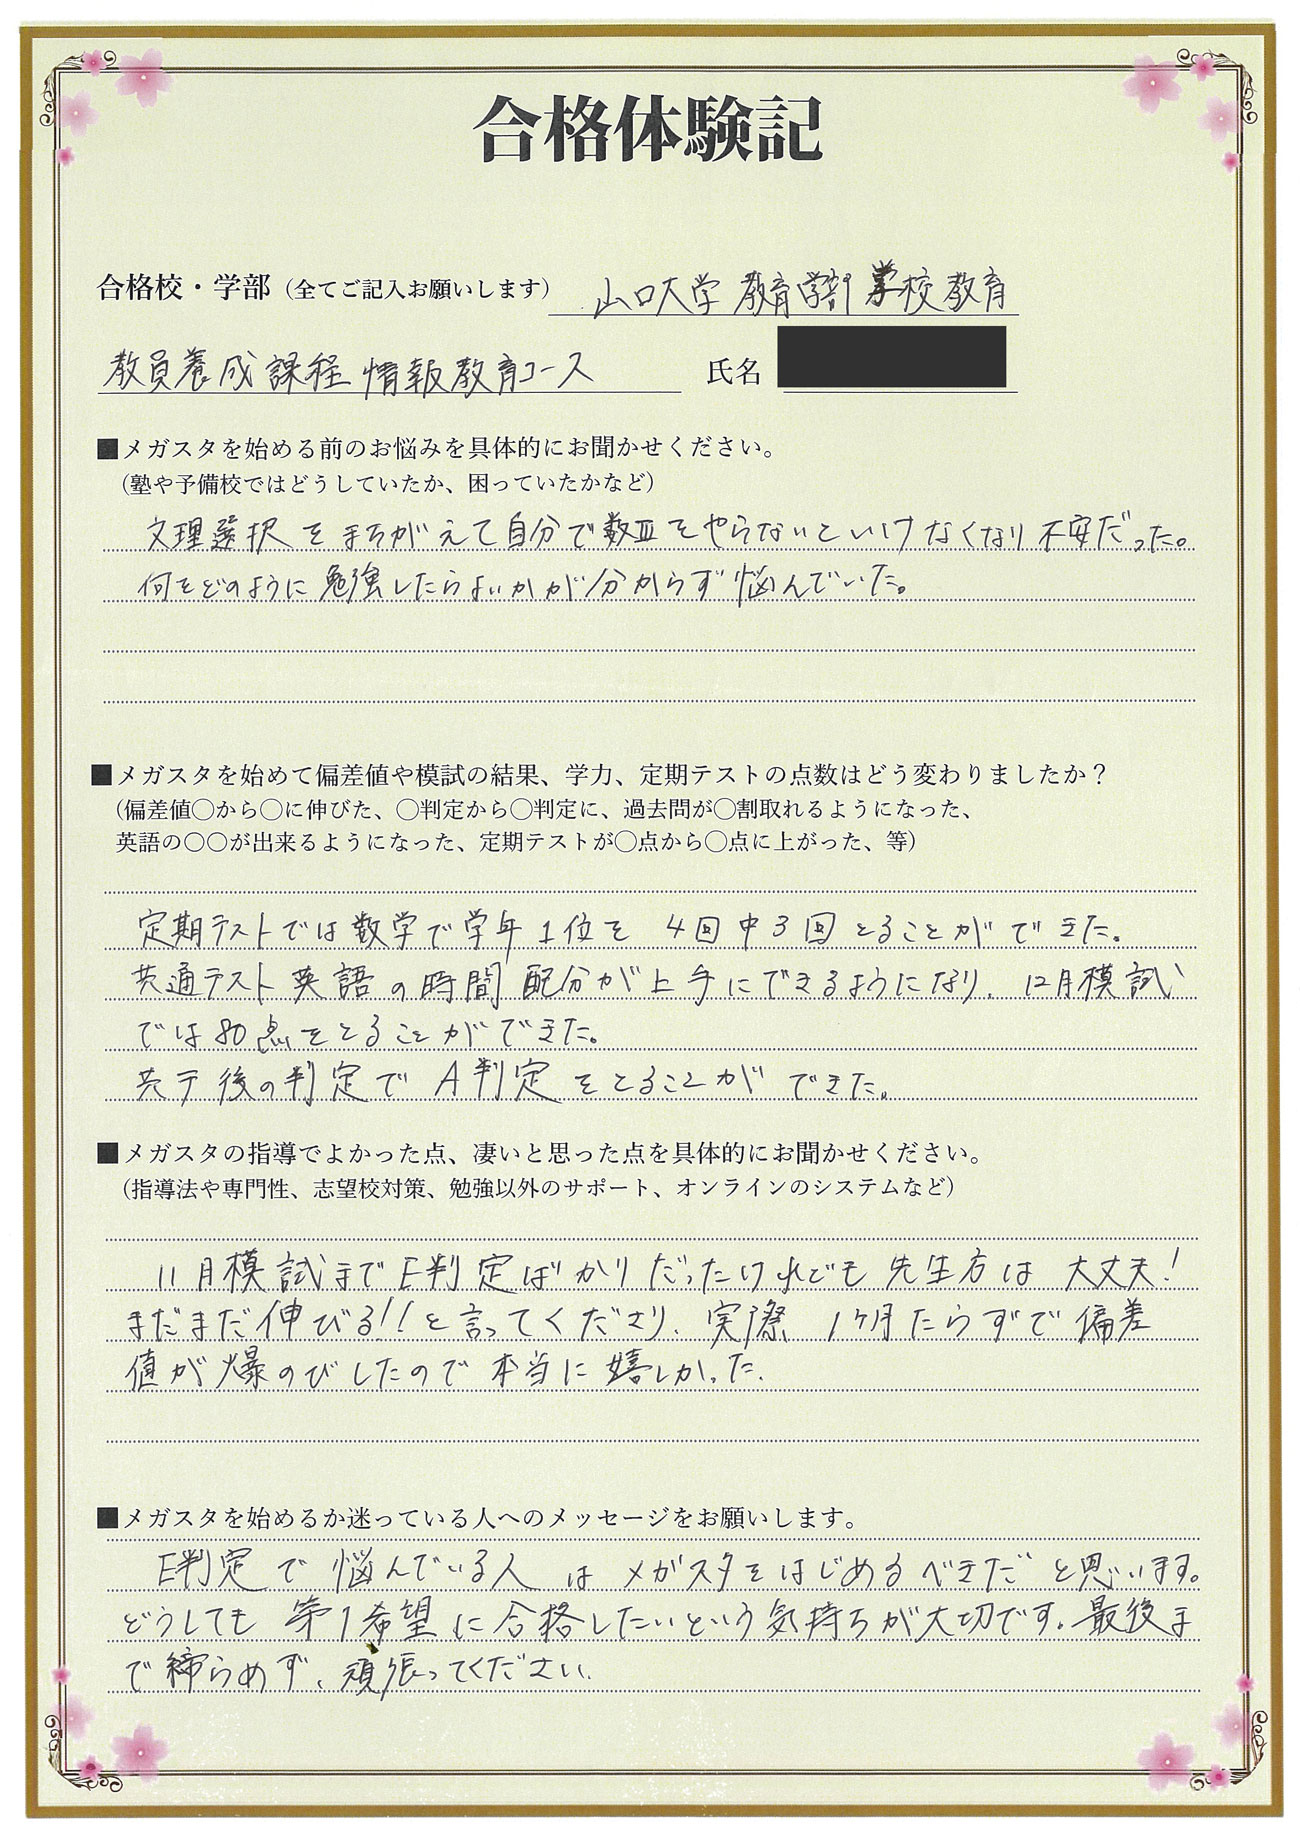 合格体験記
合格校・学部（全てご記入お願いします） 山口大学 教育学部 学校教育
教員養成課程 情報教育コース 氏名
■メガスタを始める前のお悩みを具体的にお聞かせください。
（塾や予備校ではどうしていたか、困っていたかなど）
文理選択をまちがえて自分で数Ⅲをやらないといけなくなり不安だった。
何をどのように勉強したらよいかが分からず悩んでいた。
■メガスタを始めて偏差値や模試の結果、学力、定期テストの点数はどう変わりましたか？
（偏差値〇から〇に伸びた、〇判定から〇判定に、過去問が〇割取れるようになった、
英語の〇〇が出来るようになった、定期テストが〇点から〇点に上がった、等）
定期テストでは数学で学年1位を4回中3回とることができた。
共通テスト英語の時間配分が上手にできるようになり、12月模試
では80点をとることができた。
共テ後の判定でA判定をとることができた。
■メガスタの指導でよかった点、凄いと思った点を具体的にお聞かせください。
（指導法や専門性、志望校対策、勉強以外のサポート、オンラインのシステムなど）
11月模試までE判定ばかりだったけれども先生方は大丈夫！
まだまだ伸びる！！と言ってくださり、実際1ヶ月たらずで偏差
値が爆のびしたので本当に嬉しかった.
■メガスタを始めるか迷っている人へのメッセージをお願いします。
E判定で悩んでいる人はメガスタをはじめるべきだと思います。
どうしても第1希望に合格したいという気持ちが大切です。最後ま
で締らめず、頑張ってください.